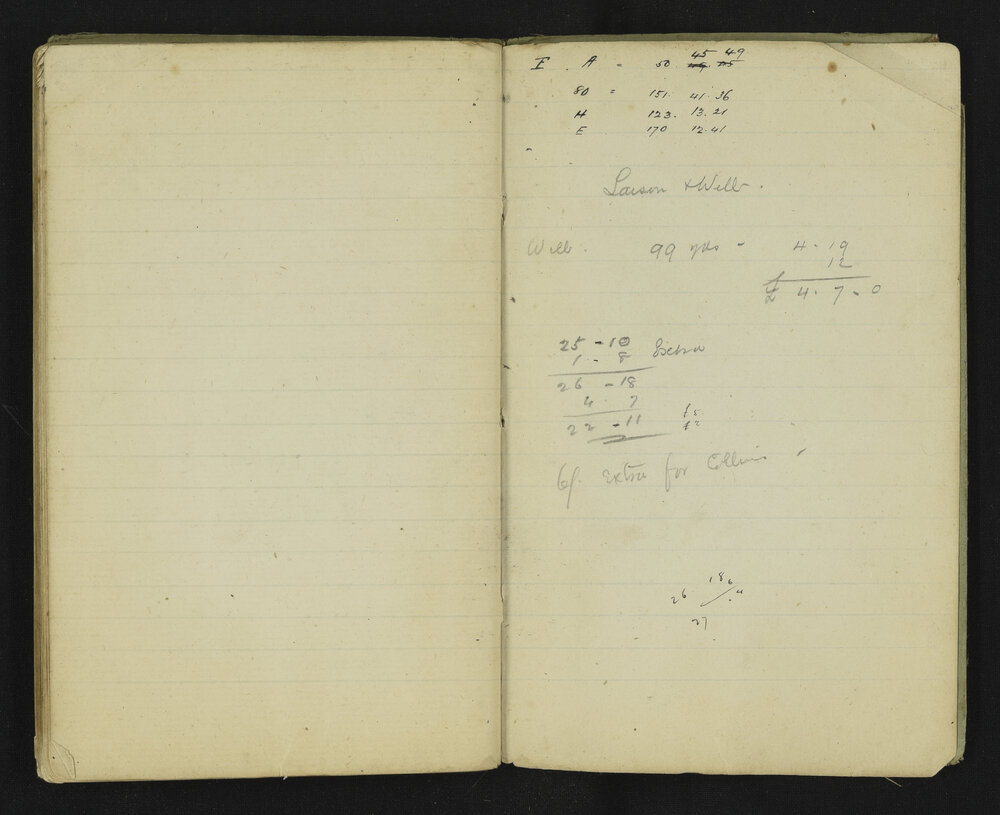 45 49
I . A = 50
80 = 151. 41. 36
H 123. 13. 21
E 170 12. 41
Larson & Webb.
Webb. 99 yds - 4 - 19
12
£ 4. 7. 0
25 - 10
1 - 8 Extra
26 - 18
4. 7
22 - 11
6/. Extra for Collins
18
26
27